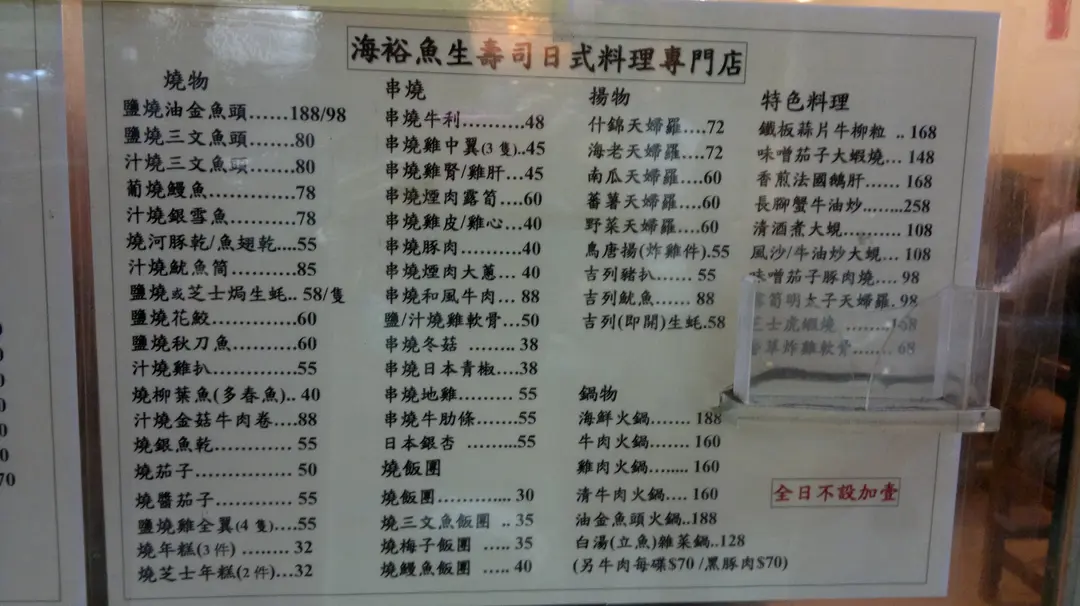 海裕魚生壽司日式料理專門店
燒物
鹽燒油金魚頭......188/98
鹽燒三文魚頭........80
汁燒三文魚頭........80
葡燒鰻魚...............78
汁燒銀雪魚............78
燒河豚乾/魚翅乾....55
汁燒魷魚筒............85
鹽燒或芝士焗生蚝.. 58/隻
鹽燒花鮫...............60
鹽燒秋刀魚............60
汁燒雞扒...............55
燒柳葉魚(多春魚).. 40
汁燒金菇牛肉卷....88
燒銀魚乾............ 55
燒茄子............... 50
燒醬茄子............ 55
鹽燒雞全翼(4 隻)....55
燒年糕(3 件) ........ 32
燒芝士年糕(2 件)...32
串燒
串燒牛利..........48
串燒雞中翼(3 隻)..45
串燒雞腎/雞肝....45
串燒煙肉露筍....60
串燒雞皮/雞心....40
串燒豚肉............40
串燒煙肉大蔥.... 40
串燒和風牛肉... 88
鹽/汁燒雞軟骨...50
串燒冬菇 ........ 38
串燒日本青椒....38
串燒地雞......... 55
串燒牛肋條........55
日本銀杏 ........55
燒飯團
燒飯團............ 30
燒三文魚飯團 .. 35
燒梅子飯團 ..... 35
燒鰻魚飯團 ..... 40
揚物
什錦天婦羅....72
海老天婦羅....72
南瓜天婦羅....60
蕃薯天婦羅....60
野菜天婦羅....60
鳥唐揚(炸雞件).55
吉列豬扒...... 55
吉列魷魚...... 88
吉列(即開)生蚝.58
鍋物
海鮮火鍋....... 188
牛肉火鍋....... 160
雞肉火鍋....... 160
清牛肉火鍋.... 160
油金魚頭火鍋..188
白湯(立魚)雜菜鍋..128
(另牛肉每碟$70 /黑豚肉$70)
特色料理
鐵板蒜片牛柳粒 .. 168
味噌茄子大蝦燒... 148
香煎法國鵝肝...... 168
長腳蟹牛油炒........258
清酒煮大蜆.......... 108
風沙/牛油炒大蜆... 108
味噌茄子豚肉燒.... 98
露筍明太子天婦羅. 98
芝士虎蝦燒 ........168
草炸雞軟骨....... 68
全日不設加壹
70